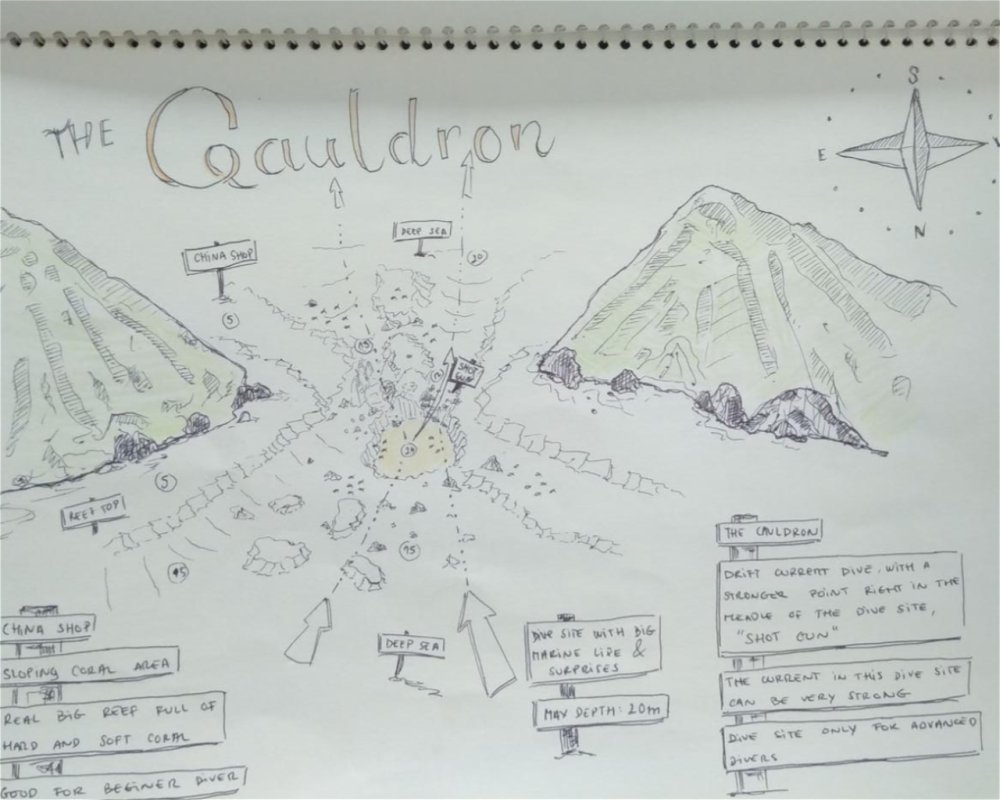 THE Cauldron
S
E
N
DEEP SEA
CHINA SHOP
20
5
SHOT GUN
5
REEF TOP
15
15
DEEP SEA
CHINA SHOP
SLOPING CORAL AREA
REAL BIG REEF FULL OF
HARD AND SOFT CORAL
GOOD FOR BEGINER DIVER
DIVE SITE WITH BIG
MARINE LIFE &
SURPRISES
MAX DEPTH: 20m
THE CAULDRON
DRIFT CURRENT DIVE, WITH A
STRONGER POINT RIGHT IN THE
MEADLE OF THE DIVE SITE,
"SHOT GUN"
THE CURRENT IN THIS DIVE SITE
CAN BE VERY STRONG
DIVE SITE ONLY FOR ADVANCED
DIVERS